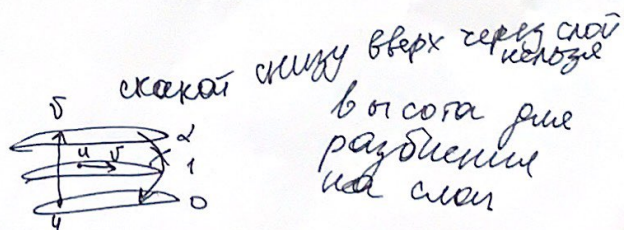 скакой снизу вверх через слой
нельзя
высота для
разбиения
на слои
v
2
u v
1
0
u